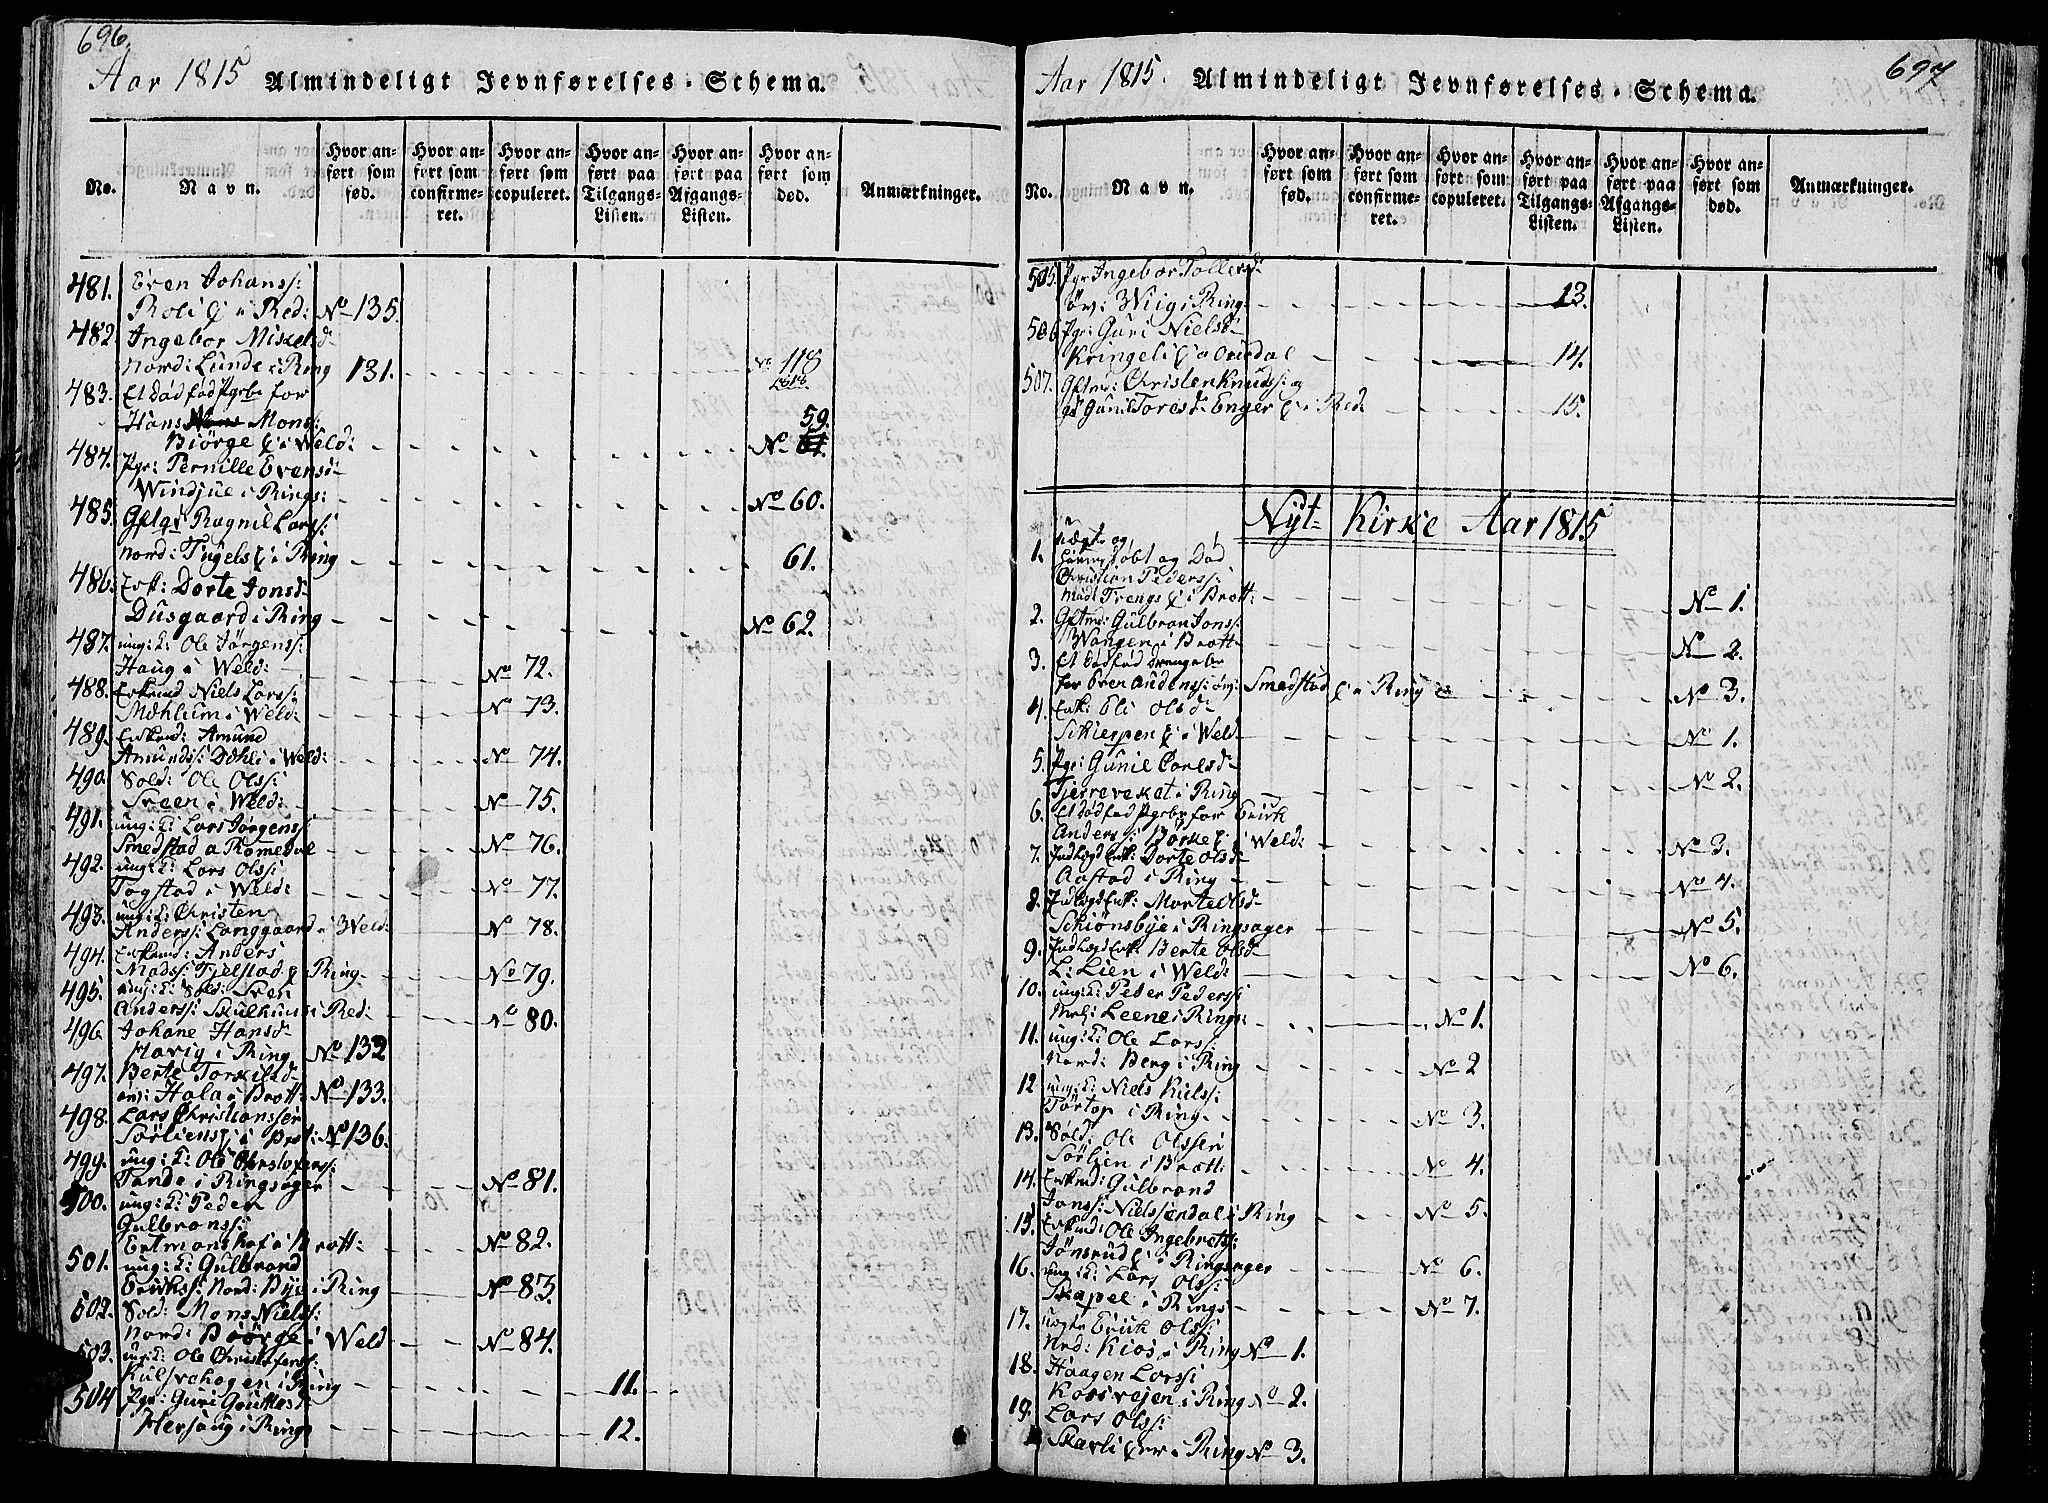 696.
Aar 1815 Almindeligt Jevnførelses-Schema.
No.
Navn.
Hvor anført som fød.
Hvor anført som confirmeret.
Hvor anført som copuleret.
Hvor anført paa Tilgangs-Listen.
Hvor anført paa Afgangs-Listen.
Hvor anført som død.
Anmærkninger.
481. Even Johanss:
Roli i Red: No 135.
482. Ingebor Mikelsd:
Nord: Lunde i Ring 131. No 118
1816
483. Et dødfød Pgrb for
Hans Mons: 59.
Biørge i Weld: No
484. Pgr: Pernille Evensd:
Windjue i Rings: No 60.
485. Ragnil Larss:
Nord: i Ring 61.
486. Enk: Dorte Jonsd:
Dusgaard i Ring No 62.
487. ung: K: Ole Jørgenss:
Haug i Weld: No 72.
488. Enkmd Niels Larss:
Mæhlum i Weld: No 73.
489. Enkmd: Amund
Amundss: Dæhli i Weld: No 74.
490. Sold: Ole Olss:
Sveen i Weld: No 75.
491. ung: K: Lars Jørgenss:
Smedstad a Romedal No 76.
492. ung: K: Lars Olss:
Togstad i Weld: No 77.
493. ung: K: Christen
Anderss: Langgaard i Weld: No 78.
494. Enkmd: Anders
Madss: Tjelstad i Ring No 79.
495. ung: K: Sold: Sven
Anderss: Skulhuus i Red: No 80.
496. Johane Hansd:
Mavig i Ring No 132
497. Berte Torkilsd:
øv: Hola i Brott: No 133.
498. Lars Christianssen
Sørliens i Brot: No 136.
499. ung: K: Ole Christofers:
Tande i Ringsager No 81.
500. ung: K: Peder
Gulbranss:
i Brott: No 82.
501. ung: K: Gulbrand
Erikss: Nord: Bye i Ring No 83.
502. Sold: Mons Nielss:
Nord: Biørge i Weld No 84.
503. ung: K: Ole Christofers:
i Ring 11.
504 Pgr: Guri
Hersaug i Ring 12.
697
Aar 1815. Almindeligt Jevnførelses-Schema.
No.
Navn.
Hvor anført som fød.
Hvor anført som confirmeret.
Hvor anført som copuleret.
Hvor anført paa Tilgangs-Listen.
Hvor anført paa Afgangs-Listen.
Hvor anført som død.
Anmærkninger.
505. Pgr Ingebor Tollevsd:
øv: Wiig i Ring 13.
506 Pgr: Guri Nielsd:
Kringeli 14.
507. Gftmd: Christen Knudss: og
Gunil Toresd: Enger i Red 15.
Nyt Kirke Aar 1815
og
1. døbt og Død
Christian Pederss:
i Brott: No 1.
2. Gftmd: Gulbran Jonss:
Wangen i Brott No 2.
3. Et dødfød Drengeb
for Even Smedstad i Ring No 3.
4. Enk: Eli Olsd:
Skierpen i Weld No 1.
5. Pgr: Gunil Carlsd:
i Ring No 2.
6. Et dødfød Pgrb for Erick
Anderss: Borke i Weld: No 3.
7. Indlagd Enk: Dorte Olsd:
Aastad i Ring No 4.
8. Indlagd Enk: Marte Olsd:
Schiønsbye i Ringsager No 5.
9. Indlagd Enk: Berte Olsd:
L: Lien i Weld: No 6.
10. ung: K: Peder Pederss:
Leene i Rings: No 1.
11. ung: K: Ole Larss:
Nord: Berg i Ring No 2
12 ung: K: Niels
Tørtop i Ring No 3.
13. Sold: Ole Olssen
Sørlien i Brott: No 4.
14. Enkmd: Gulbrand
Jonss: i Ring No 5.
15. Enkmd: Ole Ingebretss:
Jønsrud i Ringsager No 6.
16. ung: K: Lars Olss:
Skapel i Rings No 7.
17. Erick Olss:
Nrd: Kios i Ring No 1.
18. Haagen Larss:
Korsvejen i Ring No 2.
19. Lars Olss:
Skarli i Ring No 3.